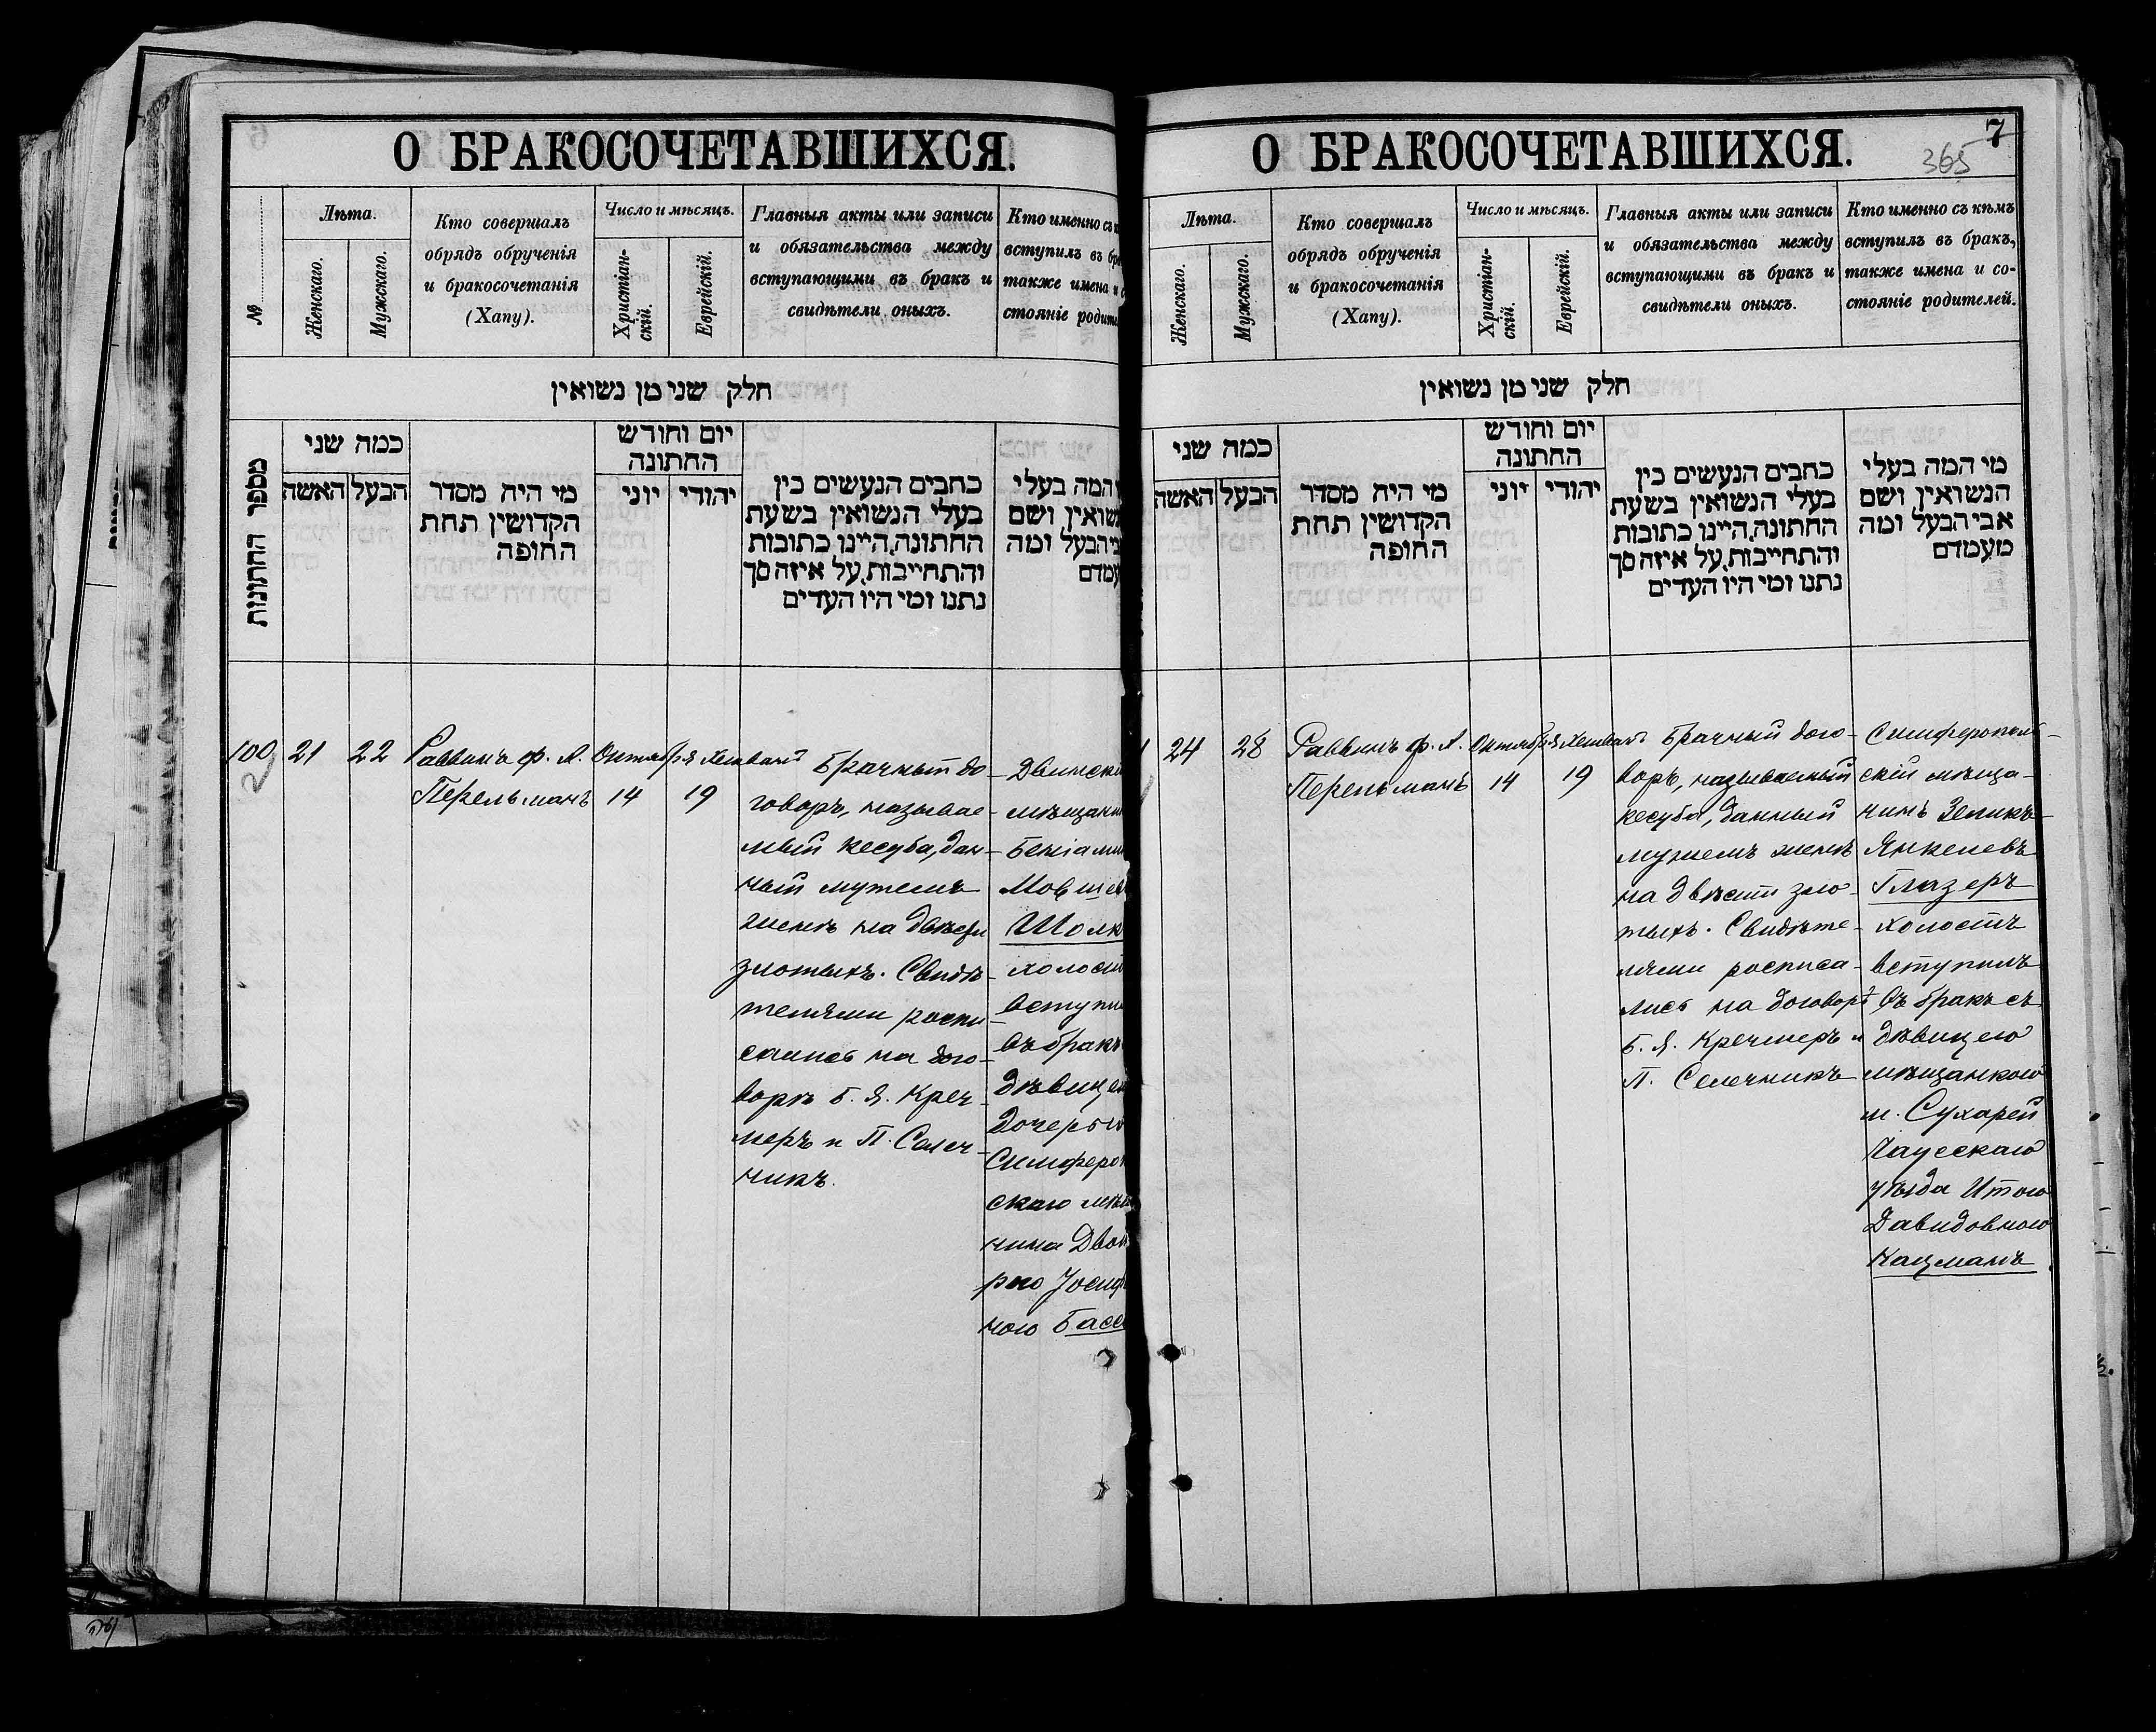 О БРАКОСОЧЕТАВШИХСЯ.
№
Лѣта.
Женскаго.
Мужскаго.
Кто совершалъ
обрядъ обрученія
и бракосочетанія
(Хапу).
Число и мѣсяцъ.
Христіан-
скій.
Еврейскій.
Главныя акты или записи
и обязательства между
вступающими въ бракъ и
свидѣтели оныхъ.
Кто именно съ
вступилъ въ
также имена
стояніе
חלק שני מן נשואין
מספר החתונות
כמה שני
האשה
הבעל
מי היה מסדר
הקדושין תחת
החופה
יום וחודש
החתונה
יוני
יהודי
כתבים הנעשים בין
בעלי הנשואין בשעת
החתונה, היינו כתובות
והתחייבות, על איזה סך
נתנו ומי היו העדים
המה בעלי
ושם
הבעל ומה
100
21
22
Раввинъ ф. А.
Перельманъ
Октября
14
Хешвана
19
Брачный до-
говоръ, называе-
мый кесуба, дан-
ный мужемъ
женѣ на двѣсти
злотыхъ. Свидѣ-
телями распи-
сались на дого-
ворѣ Б. Я. Креч-
меръ и П. Селеч-
никъ.
въ бракъ
скаго
нина
ною
О БРАКОСОЧЕТАВШИХСЯ.
7
365
Лѣта.
Женскаго.
Мужскаго.
Кто совершалъ
обрядъ обрученія
и бракосочетанія
(Хапу).
Число и мѣсяцъ.
Христіан-
скій.
Еврейскій.
Главныя акты или записи
и обязательства между
вступающими въ бракъ и
свидѣтели оныхъ.
Кто именно съ кѣмъ
вступилъ въ бракъ,
также имена и со-
стояніе родителей.
חלק שני מן נשואין
כמה שני
האשה
הבעל
מי היה מסדר
הקדושין תחת
החופה
יום וחודש
החתונה
יוני
יהודי
כתבים הנעשים בין
בעלי הנשואין בשעת
החתונה, היינו כתובות
והתחייבות, על איזה סך
נתנו ומי היו העדים
מי המה בעלי
הנשואין ושם
אבי הבעל ומה
מעמדם
24
28
Раввинъ ф. А.
Перельманъ
Октября
14
Хешвана
19
Брачный дого-
воръ, называемый
кесуба, данный
мужемъ женѣ
на двѣсти зло-
тыхъ. Свидѣте-
лями росписа-
лись на договорѣ
Б. Я. Кречмеръ и
П. Селечникъ
Симферополь-
скій мѣща-
нинъ Зеликъ-
Янкелевъ
Глазеръ
холостъ
вступилъ
въ бракъ съ
дѣвицею
мѣщанкою
м. Сухарей
Чаусскаго
уѣзда Итою
Давидовною
Кацманъ